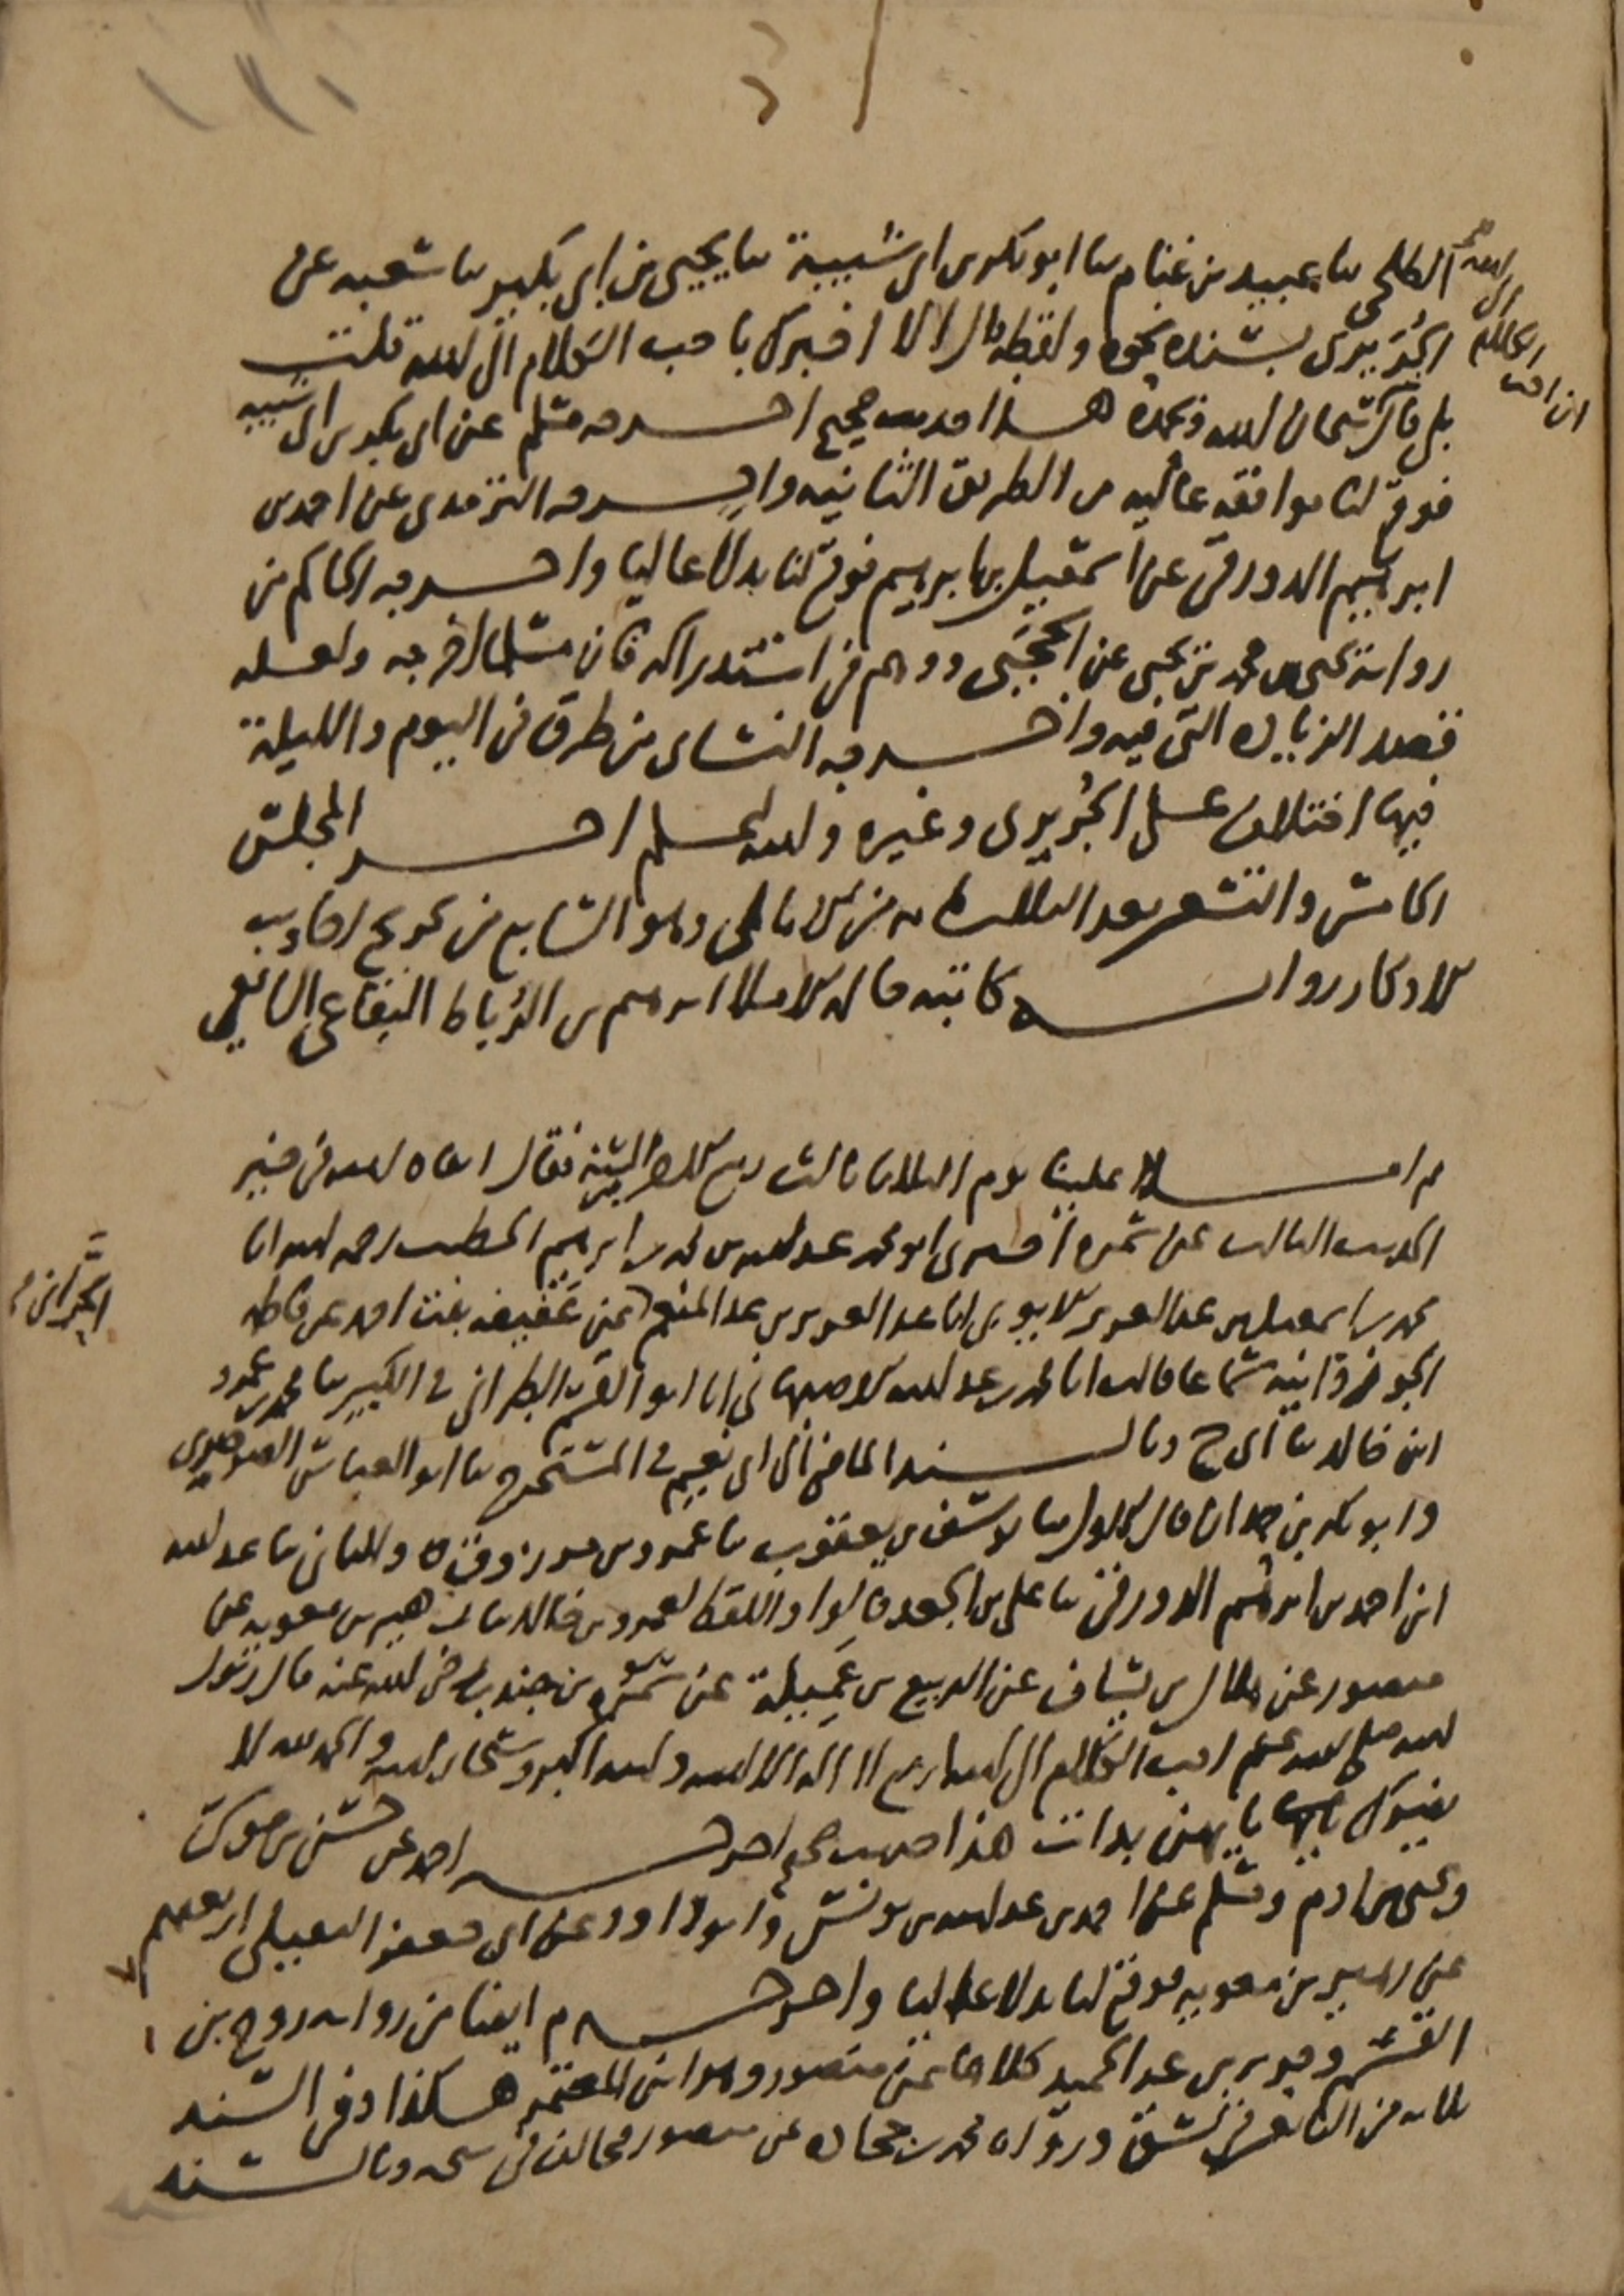 الطلحي ثنا عبيد بن غنام ثنا ابو بكر بن ابي شيبة ثنا يحيى بن ابي بكير ثنا شعبه عن
الجُرَيري بسنده نحوه ولفظه قال الا اخبرك باحب الكلام الى الله قلت
بلى قال سبحان الله وبحمده هذا حديث صحيح اخرجه مسلم عن ابي بكر بن ابي شيبه
فوقع لنا موافقه عاليه من الطريق الثانيه واخرجه الترمذي عن احمد بن
ابرهيم الدورقي عن اسمعيل بن ابرهيم فوقع لنا بدلا عاليا واخرجه الحاكم من
رواية يحيى بن محمد بن يحيى عن الحجبي ووهم في استدراكه فان مسلما اخرجه ولعله
قصد الزياده التي فيه واخرجه النسائي من طرق في اليوم والليلة
فيها اختلاف على الجُريري وغيره والله اعلم اخر المجلس
الخامس والتسعين بعد الثلاثمائه من الامالي وهو السابع من تخريج احاديث
الاذكار رواية كاتبه قال الاملا ابرهيم بن الرُباط البقاعي الشافعي
ثم املا علينا يوم الثلاثا ثالث ربيع الاخر السنة فقال ابقاه الله في خير
الحديث الثالث عن سمرة اخبرني ابو محمد عبد الله بن محمد بن ابرهيم الخطيب رحمه الله انا
محمد بن اسمعيل بن عبد العزيز الايوبي انا عبد العزيز بن عبد المنعم الحراني عن عفيفه بنت احمد عن فاطمه
الجوزدانيه سماعا قالت انا محمد بن عبد الله الاصبهاني انا ابو القسم الطبراني في الكبير ثنا محمد بن عمرو
ابن خالد ثنا ابي ح وبالسند الماضي الى ابي نعيم في المستخرج ثنا ابو العباس الصرصري
وابو بكر بن حمدان قال الاول ثنا يوسف بن يعقوب ثنا عمرو بن مرزوق والثاني ثنا عبد الله
ابن احمد بن ابرهيم الدورقي ثنا علي بن الجعد قالوا واللفظ لعمرو بن خالد ثنا زهير بن معويه عن
منصور عن هلال بن يساف عن الربيع بن عميلة عن سمرة بن جندب رضي الله عنه قال رسول
الله صلى الله عليه وسلم احب الكلام الى الله اربع لا اله الا الله والله اكبر وسبحان الله والحمد لله لا
يضرك بايهن بدات هذا حديث صحيح اخرجه احمد عن حسن بن موسى
ويحيى بن ادم ومسلم عن احمد بن عبد الله بن يونس وابو داود عن ابي جعفر النفيلي اربعتهم
عن زهير بن معويه فوقع لنا بدلا عاليا واخرجه م ايضا من رواية روح بن
القسم وجرير بن عبد الحميد كلاهما عن منصور وهو ابن المعتمر هكذا وفي السند
ثلاثه من التابعين في نسق ورواه محمد بن جحاده عن منصور فخالف في شيخه وبالسند